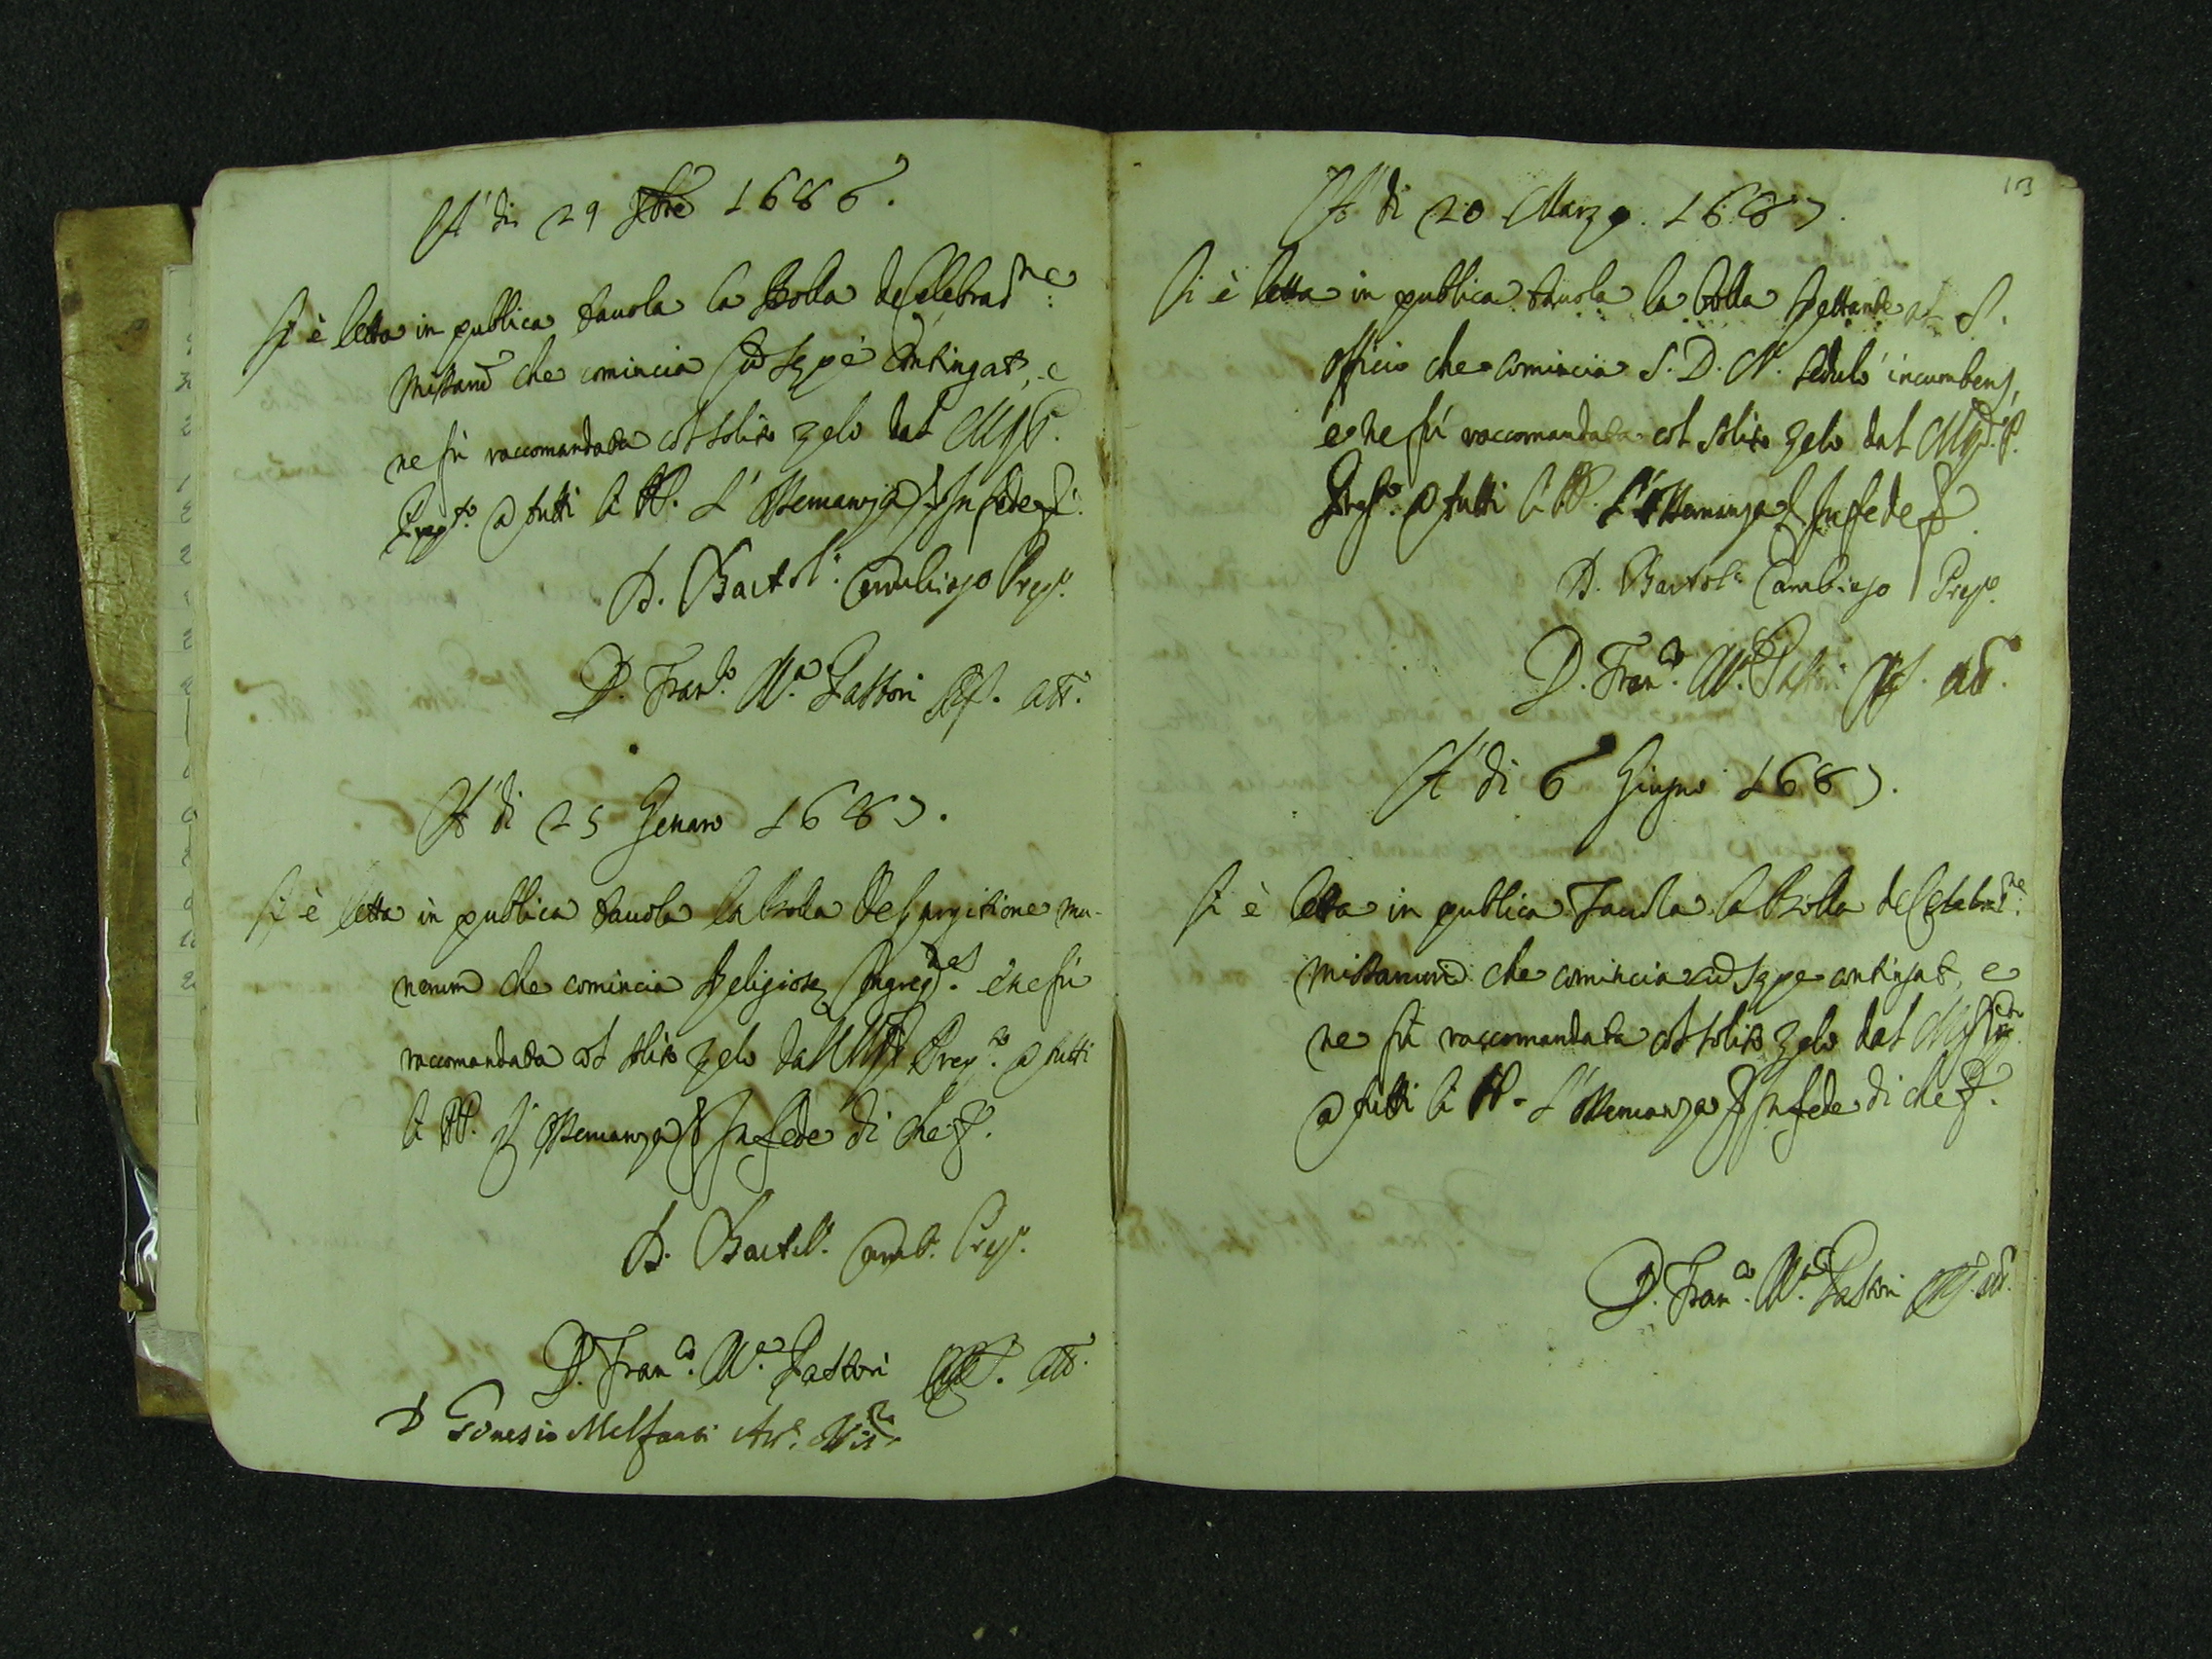 A' di 29 1686.
Si è letta in publica tavola la Bolla de Celebrat.ne
Missarum che comincia Cum sepe contingat, e
ne fù raccomandata col solito zelo dal M. R. P.
Prep.to a tutti li PP. l'osservanza. In fede
D. Bartol. Cambiago Prep.to
D. Fran.co M.a Pastori Att.
A' di 25 Genaro 1687.
Si è letta in publica tavola la Bolla de largitione mu-
nerum che comincia Religiosę Congreg.nes e ne fù
raccomandata col solito zelo dal M. R. P. Prep.to a tutti
li PP. l'osservanza. In fede di che
D. Bartol. Camb. Prep.to
D. Fran.co M.a Pastori Att.
D Vis.
113
A' di 20 Marzo. 1687.
Si è letta in publica tavola la bolla spettante al S.
Officio che comincia S. D. N. sedulò incumbens,
e ne fù raccomandata col solito zelo dal M. R. P.
Prep.to a tutti li PP. l'osservanza. In fede
D. Bartol. Cambiago Prep.to
D. Fran.co M.a Pastori Att.
A' di 6 Giugno 1687.
Si è letta in publica Tavola la Bolla de Celebrat.ne
Missarum che comincia cum sepe contingat, e
ne fù raccomandata col solito zelo dal
a tutti li PP. l'osservanza. In fede di che
D. Fran.co M.a Pastori Att.